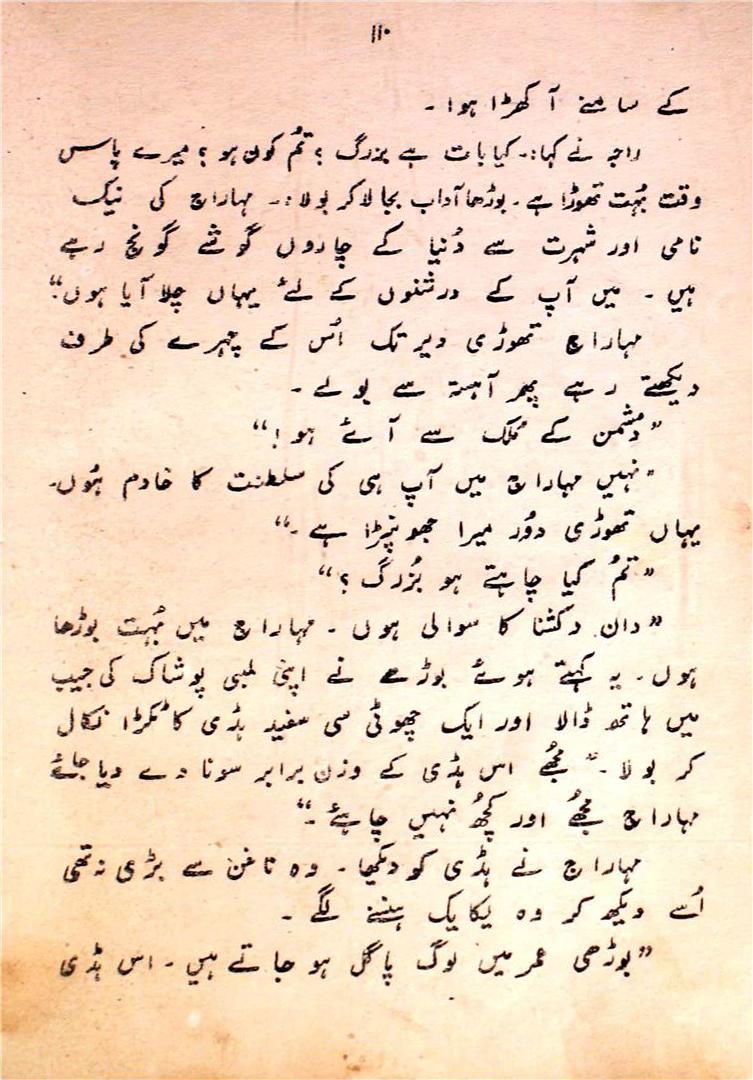 ۱۱۰
کے سامنے آ کھڑا ہوا ۔
راجہ نے کہا:۔ کیا بات ہے بزرگ ؟ تُم کون ہو ؟ میرے پاس
وقت بُہت تھوڑا ہے ۔ بوڑھا آداب بجا لا کر بولا :۔ مہاراج کی نیک
نامی اور شہرت سے دُنیا کے چاروں گوشے گونج رہے
ہیں ۔ میں آپ کے درشنوں کے لئے یہاں چلا آیا ہوں“
مہاراج تھوڑی دیر تک اُس کے چہرے کی طرف
دیکھتے رہے پھر آہستہ سے بولے ۔
”دُشمن کے مُلک سے آئے ہو !“
”نہیں مہاراج میں آپ ہی کی سلطنت کا خادم ہُوں۔
یہاں تھوڑی دُور میرا جھونپڑا ہے ۔“
”تُم کیا چاہتے ہو بُزرگ ؟“
”دان دکشنا کا سوالی ہوں ۔ مہاراج میں بُہت بوڑھا
ہوں ۔ یہ کہتے ہوئے بوڑھے نے اپنی لمبی پوشاک کی جیب
میں ہاتھ ڈالا اور ایک چھوٹی سی سفید ہڈی کا ٹکڑا نکال
کر بولا ۔” مُجھے اس ہڈی کے وزن برابر سونا دے دیا جائے
مہاراج مُجھے اور کُچھ نہیں چاہئے ۔“
مہاراج نے ہڈی کو دیکھا ۔ وہ ناخن سے بڑی نہ تھی
اُسے دیکھ کر وہ یکایک ہنسنے لگے ۔
”بوڑھی عمر میں لوگ پاگل ہو جاتے ہیں ۔ اس ہڈی